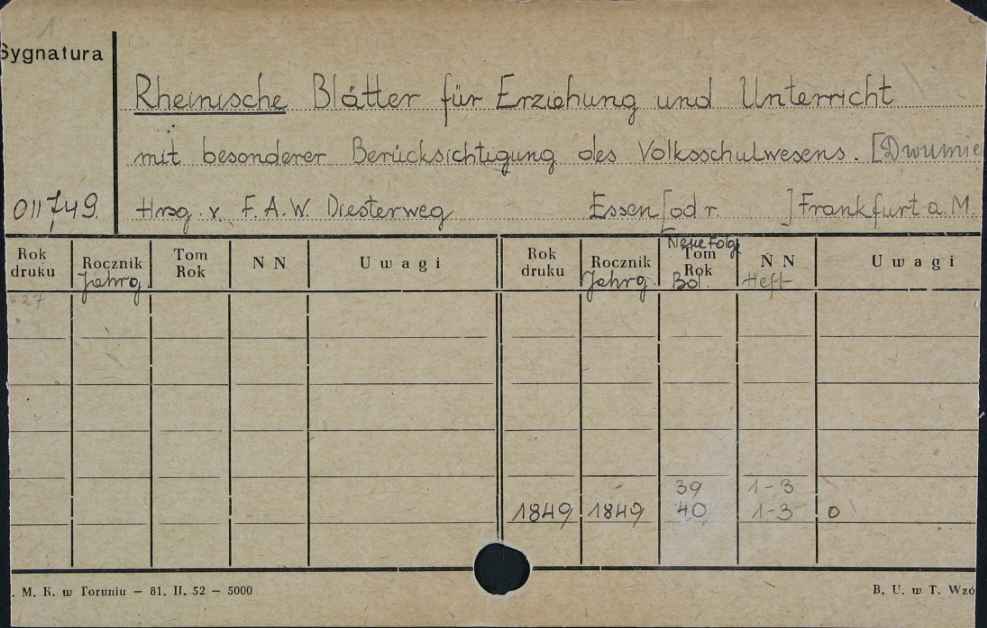 1
Sygnatura
Rheinische Blätter für Erziehung und Unterricht
mit besonderer Berücksichtigung des Volksschulwesens. [Dwumie
011749. Hrsg. v. F. A. W. Diesterweg Essen [od r. ] Frankfurt a. M.
Neue Folg
Rok druku Rocznik Tom Rok N N Uwagi Rok druku Rocznik Tom Rok N N Uwagi
Jahrg. Jahrg. Bd. Heft
27
39 1-3
1849 1849 40 1-3 0
. M. K. w Toruniu — 81. II. 52 — 5000 B. U. w T. Wzó